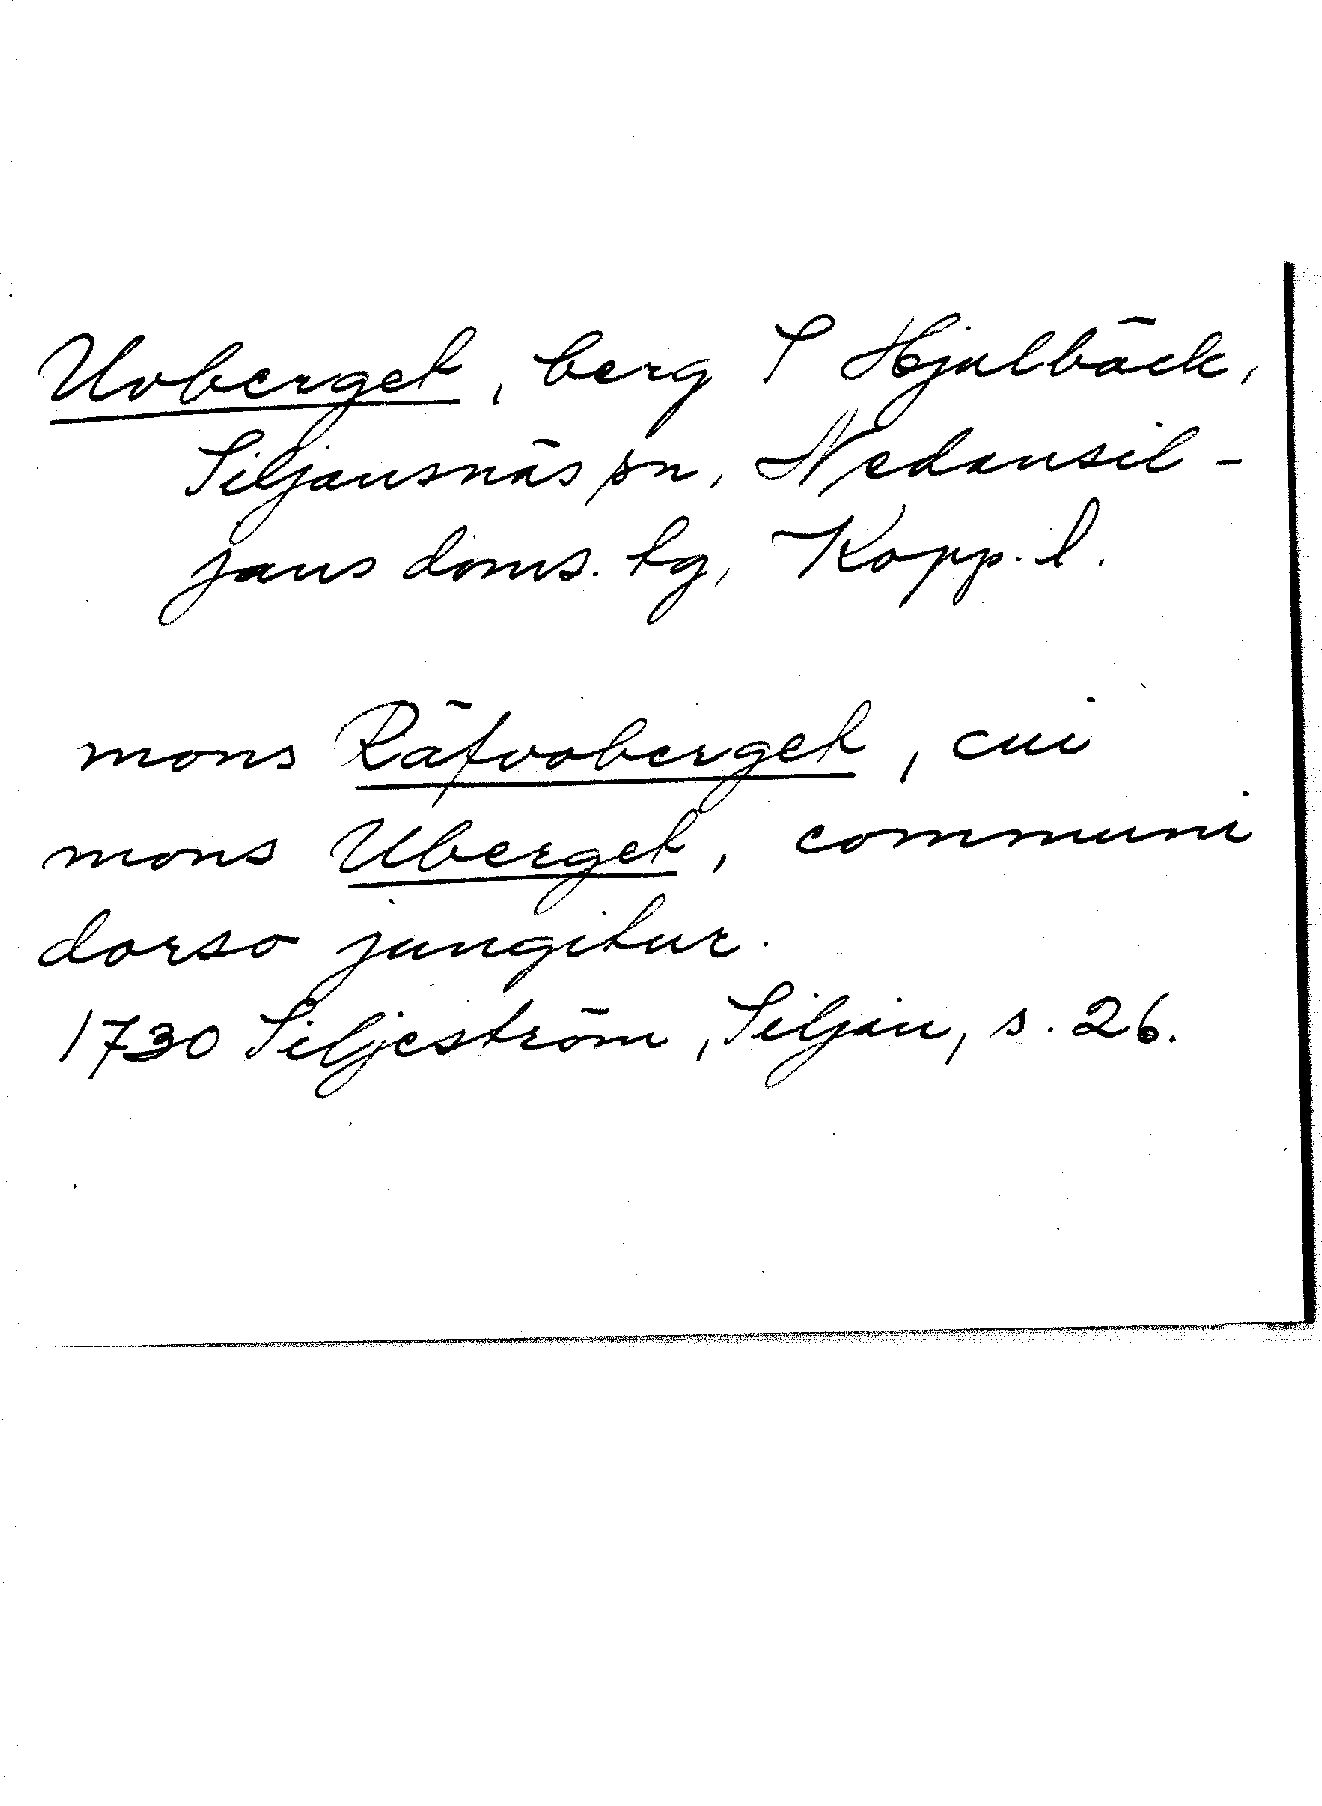 Uvberget, berg S Hjulbäck,
Siljansnäs sn, Nedansil-
jans doms. tg, Kopp. l.
mons Räfvoberget, cui
mons Uberget, communi
dorso jungitur.
1730 Siljeström, Siljan, s. 26.